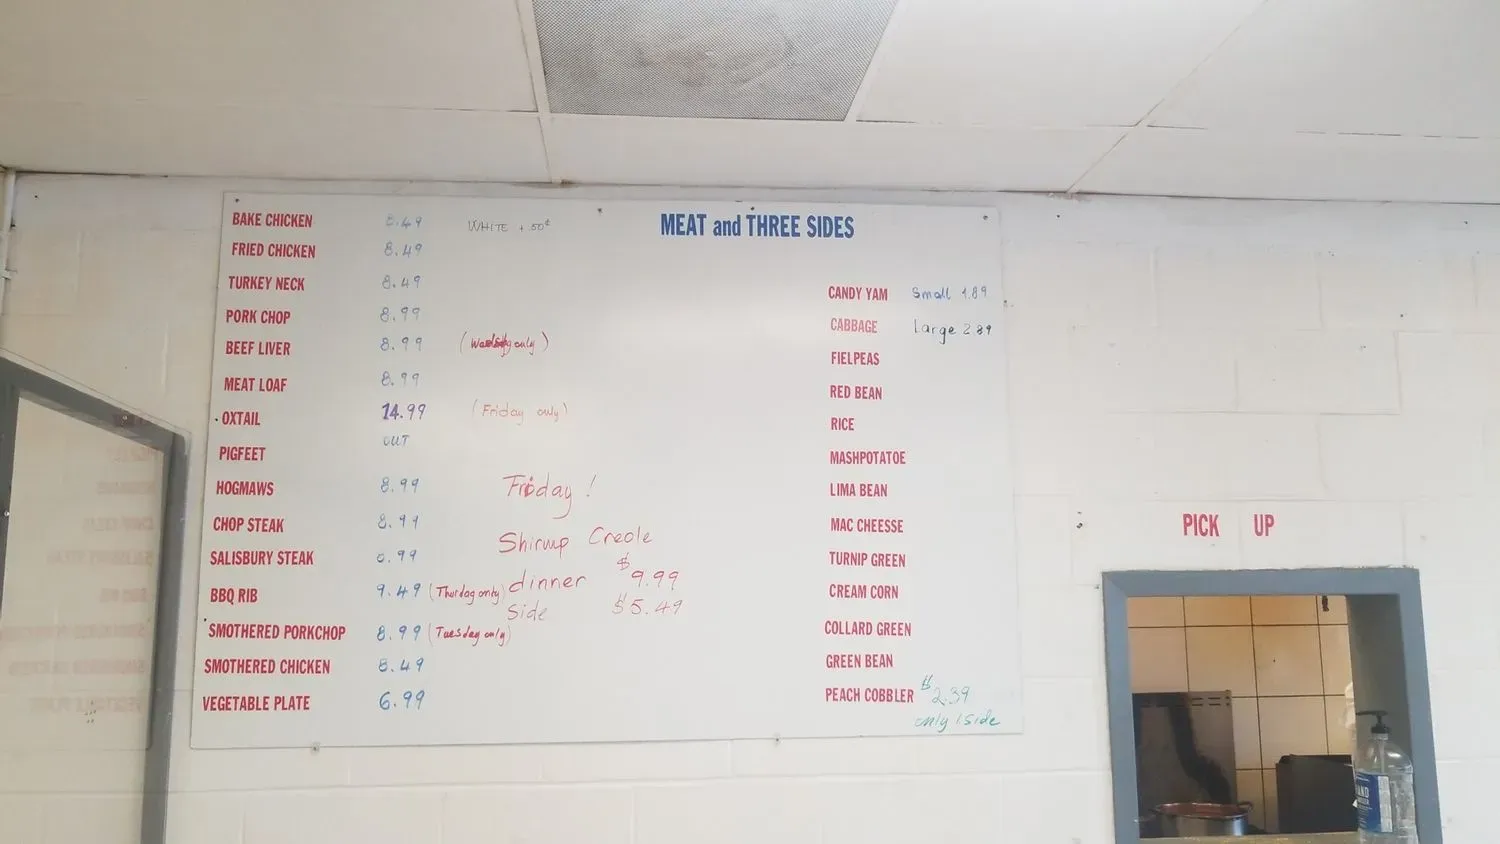 MEAT and THREE SIDES
BAKE CHICKEN 8.49 WHITE + .50¢
FRIED CHICKEN 8.49
TURKEY NECK 8.49
PORK CHOP 8.99
BEEF LIVER 8.99 ( only)
MEAT LOAF 8.99
OXTAIL 14.99 (Friday only)
PIGFEET OUT
HOGMAWS 8.99
CHOP STEAK 8.99
SALISBURY STEAK 8.99
BBQ RIB 9.49 (Thurday only)
SMOTHERED PORKCHOP 8.99 (Tuesday only)
SMOTHERED CHICKEN 8.49
VEGETABLE PLATE 6.99
Friday !
Shirmp Creole
dinner $9.99
Side $5.49
CANDY YAM Small 1.89
CABBAGE Large 2.89
FIELPEAS
RED BEAN
RICE
MASHPOTATOE
LIMA BEAN
MAC CHEESSE
TURNIP GREEN
CREAM CORN
COLLARD GREEN
GREEN BEAN
PEACH COBBLER $2.39
only 1 side
PICK UP
HAND